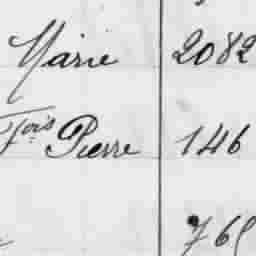 Marie 2082
Fçois Pierre 146